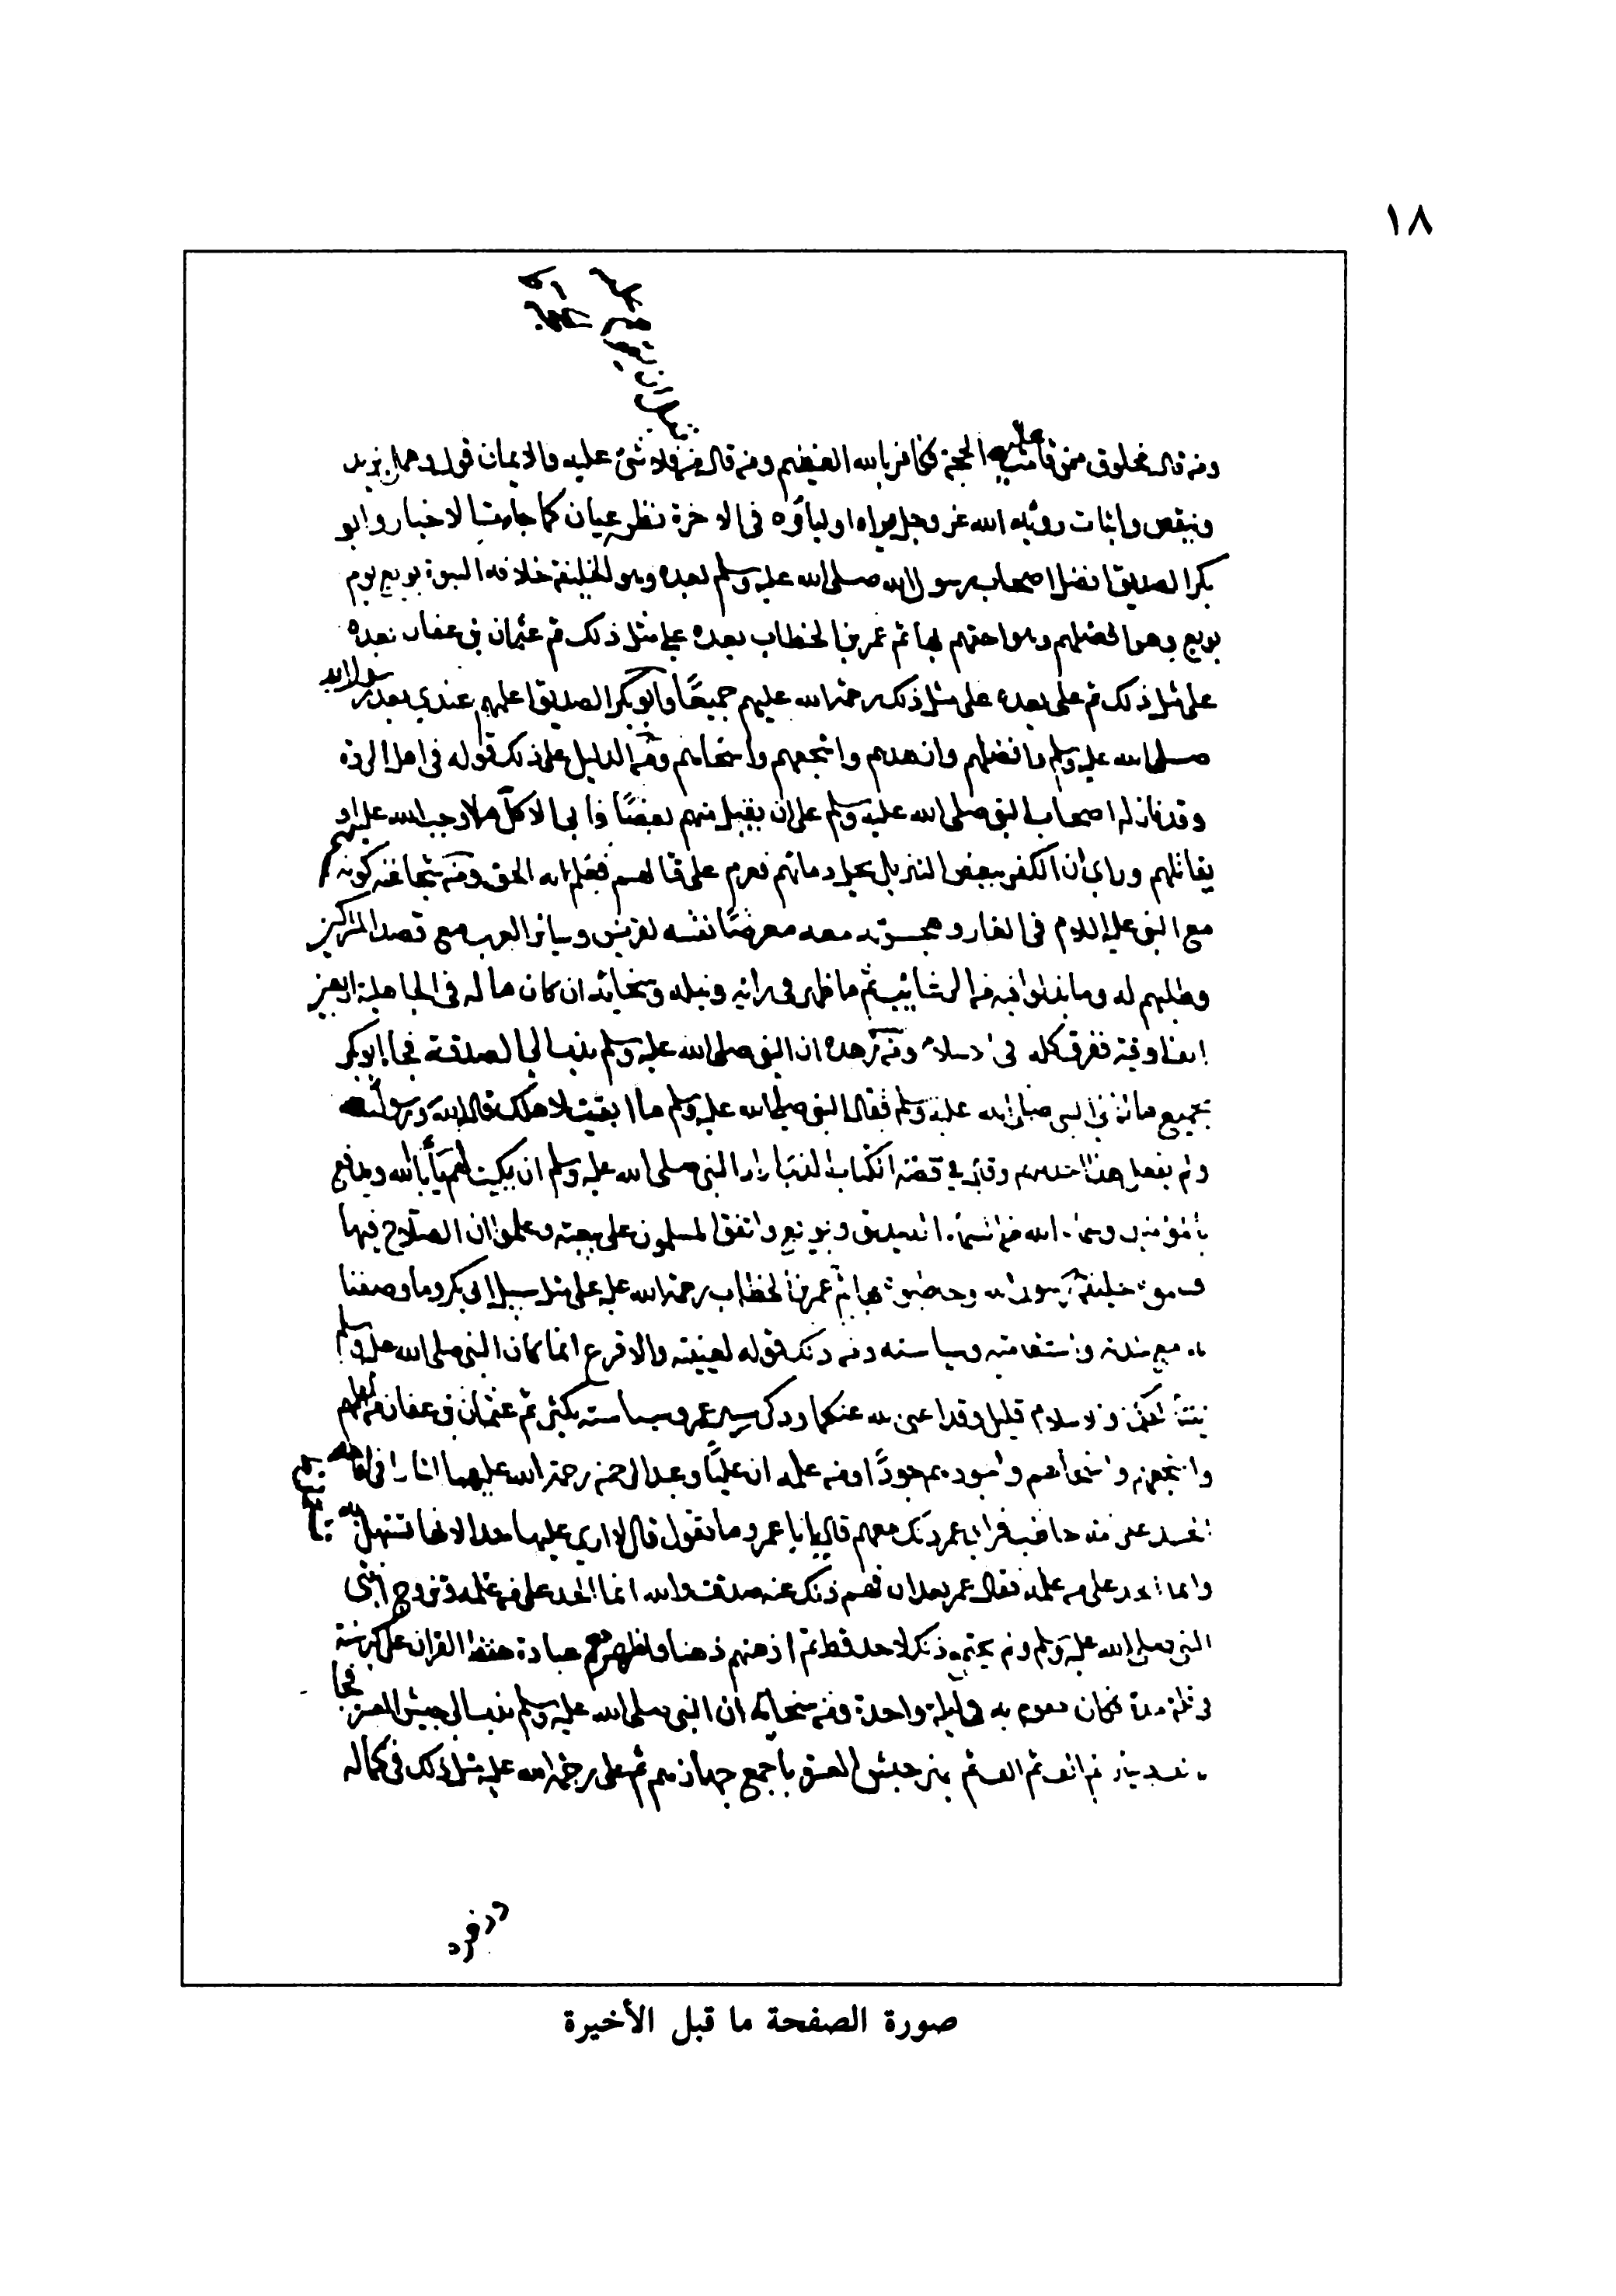 ١٨
ومن قال مخلوق ممن قامت عليه الحجة فكافر بالله العظيم ومن قال فلا شئ عليه والايمان قول وعمل يزيد
وينقص واثبات رؤية الله عز وجل يراه اولياؤه في الاخرة نظر عيان كما جاءت الاخبار وابو
بكر الصديق افضل اصحاب رسول الله صلى الله عليه وسلم بعده وهو الخليفة خلافة النبوة بويع يوم
بويع وهو افضلهم وهو احقهم بها ثم عمر بن الخطاب بعده على مثل ذلك ثم عثمان بن عفان بعده
على مثل ذلك ثم على بعده على مثل ذلك رحمة الله عليهم جميعًا وابو بكر الصديق اعلمهم عندي بعد رسول الله
صلى الله عليه وسلم وافضلهم وازهدهم واشجعهم واسخاهم ومن الدليل على ذلك قوله في اهل الردة
وقد نازله اصحاب النبي صلى الله عليه وسلم على ان يقبل منهم بعضًا فابى الا كل ما اوجب الله عليهم او
يقاتلهم وراى ان الكفر ببعض التنزيل يحل دماءهم فعزم على قتالهم فعلم انه الحق ومن شجاعته كونه
مع النبي عليه السلام في الغار و معه معرضًا نفسه لقريش وسائر العرب مع قصد المشركين
وطلبهم له وما بذلوا فيه من ثم ما ظهر في رايه ونبله وسخائه ان كان ماله في الجاهلية اربعين
اوقية ففرق كله في الاسلام ومن زهده ان النبي صلى الله عليه وسلم ندب الى الصدقة فجا ابو بكر
بجميع ماله الى النبي صلى الله عليه وسلم فقال النبي صلى الله عليه وسلم ما ابقيت لاهلك قال الله ورسوله
ولم يفعل هذا احد منهم وقال في قصة الكتاب الذي اراد النبي صلى الله عليه وسلم ان يكتب لهم يأبى الله ويدافع
بالمؤمنين وسماه الله من السماء الصديق وبويع واتفق المسلمون على بيعته وعلموا ان الصلاح فيها
فسموه خليفة رسول الله وخاطبوه بها ثم عمر بن الخطاب رحمة الله عليه على مثل سبيل ابي بكر وما وصفنا
به مع شدته واستقامته وسياسته ومن ذلك قوله لعيينة والاقرع انما كان النبي صلى الله عليه وسلم
والاسلام قليل وقد اغنى الله عنكما وذكر سير عمر وسياسته يكثر ثم عثمان بن عفان من اعلمهم
واشجعهم واسخاهم واجودهم جودًا ومن علمه ان عليًا وعبد الرحمن رحمة الله عليهما اشارا في اقامة
الحد على من حاطب فراى عمر ذلك معهم قال يابا عمرو ما تقول قال لا ارى عليها حدا لانها تستهل به
وانما الحد على من علمه فقال عمر بعد ان فهم ذلك عنه صدقت والله انما الحد على من علمه وتزوج ابنتي
النبي صلى الله عليه وسلم ولم يجتمع ذلك لاحد قط ثم اذهنهم ذهنا واظهرهم عبادة حفظ القران على كبر سنه
في قلة مدة فكان يقوم به في ليلة واحدة ومن سخائه ان النبي صلى الله عليه وسلم ندب الى جيش العسرة فجا
بالف دينار ثم الف ثم الف ثم جهز جيش العسرة باجمع جهازهم ثم على رحمة الله عليه مثل ذلك في كماله
صورة الصفحة ما قبل الأخيرة